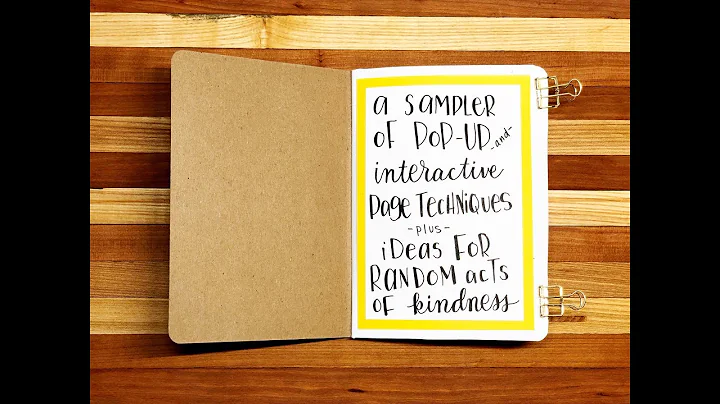 a SAMPLER
OF POP-UP -and-
interactive
page TECHNiQUES
-plus-
iDeas FOR
RANDOM acTS
OF kindness